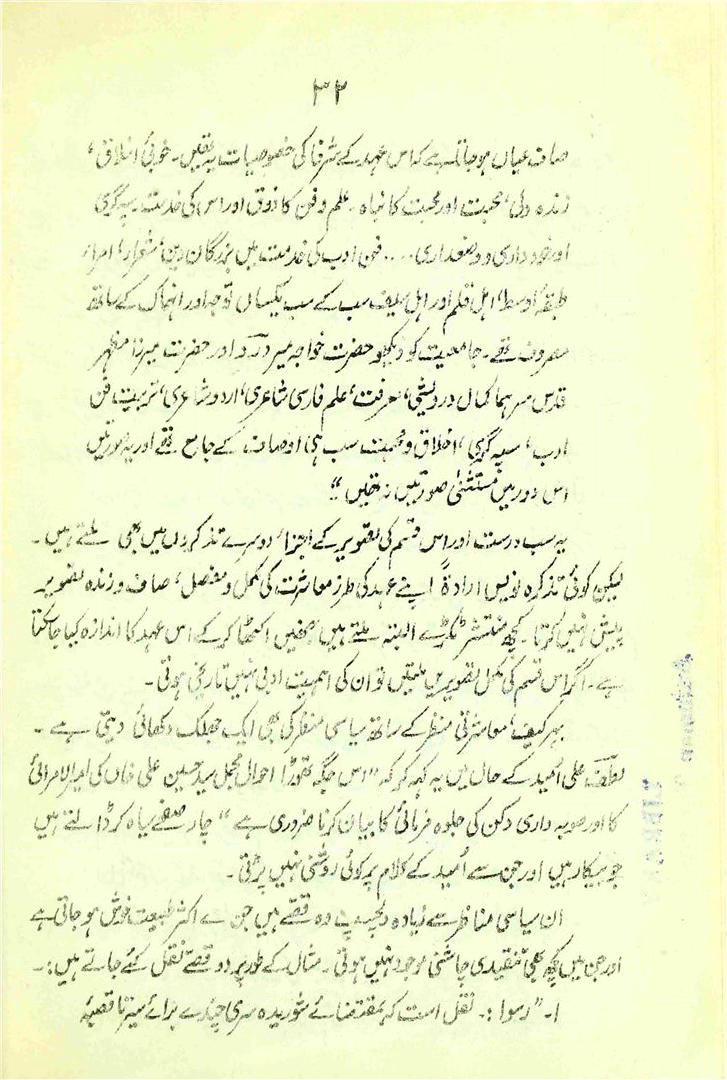 ۳۲
صاف عیاں ہو جاتا ہے کہ اس عہد کے شرفا کی خصوصیات یہ تھیں۔ خوبیٔ اخلاق،
زندہ دلی، محبت اور محبت کا نباہ۔ علم و فن کا ذوق اور اس کی خدمت۔ سپہ گری
اور خودداری و وضعداری .... فن ادب کی خدمت میں بزرگان دین، شعرار، امراء
طبقۂ اوسط، اہل قلم اور اہل سیف سب کے سب یکساں توجہ اور انہماک کے ساتھ
مصروف تھے۔ جامعیت کو دیکھو حضرت خواجہ میر درد اور حضرت میرزا مظہر
قدس سرہما کمال درویشی، معرفت، علم فارسی شاعری، اردو شاعری، تربیت فن
ادب، سپہ گری، اخلاق و محبت سب ہی اوصاف کے جامع تھے اور یہ صورتیں
اس دور میں مستثنیٰ صورتیں نہ تھیں"
یہ سب درست اور اس قسم کی تصویر کے اجزاء دوسرے تذکروں میں بھی ملتے ہیں۔
لیکن کوئی تذکرہ نویس ارادۃً اپنے عہد کی طرز معاشرت کی مکمل و مفصل، صاف و زندہ تصویر
پیش نہیں کرتا۔ کچھ منتشر ٹکڑے البتہ ملتے ہیں جنھیں اکٹھا کر کے اس عہد کا اندازہ کیا جا سکتا
ہے۔ اگر اس قسم کی مکمل تصویریں ملتیں تو ان کی اہمیت ادبی نہیں تاریخی ہوتی۔
بہر کیف، معاشرتی منظر کے ساتھ سیاسی منظر کی بھی ایک جھلک دکھائی دیتی ہے۔
لطف علی امید کے حال میں یہ کہہ کر کہ "اس جگہ تھوڑا احوال مجمل سید حسین علی خاں کی امیر الامرائی
کا اور صوبہ داری دکن کی جلوہ فرمائی کا بیان کرنا ضروری ہے" چار صفحے سیاہ کر ڈالتے ہیں
جو بیکار ہیں اور جن سے امید کے کلام پر کوئی روشنی نہیں پڑتی۔
ان سیاسی مناظر سے زیادہ دلچسپ وہ قصے ہیں جن سے اکثر طبیعت خوش ہو جاتی ہے
اور جن میں کچھ بھی تنقیدی چاشنی موجود نہیں ہوتی۔ مثال کے طور پر دو قصے نقل کئے جاتے ہیں:۔
۱۔ "رسوا:۔ نقل است کہ بمقتضائے شوریدہ سری چندے برائے میرنا